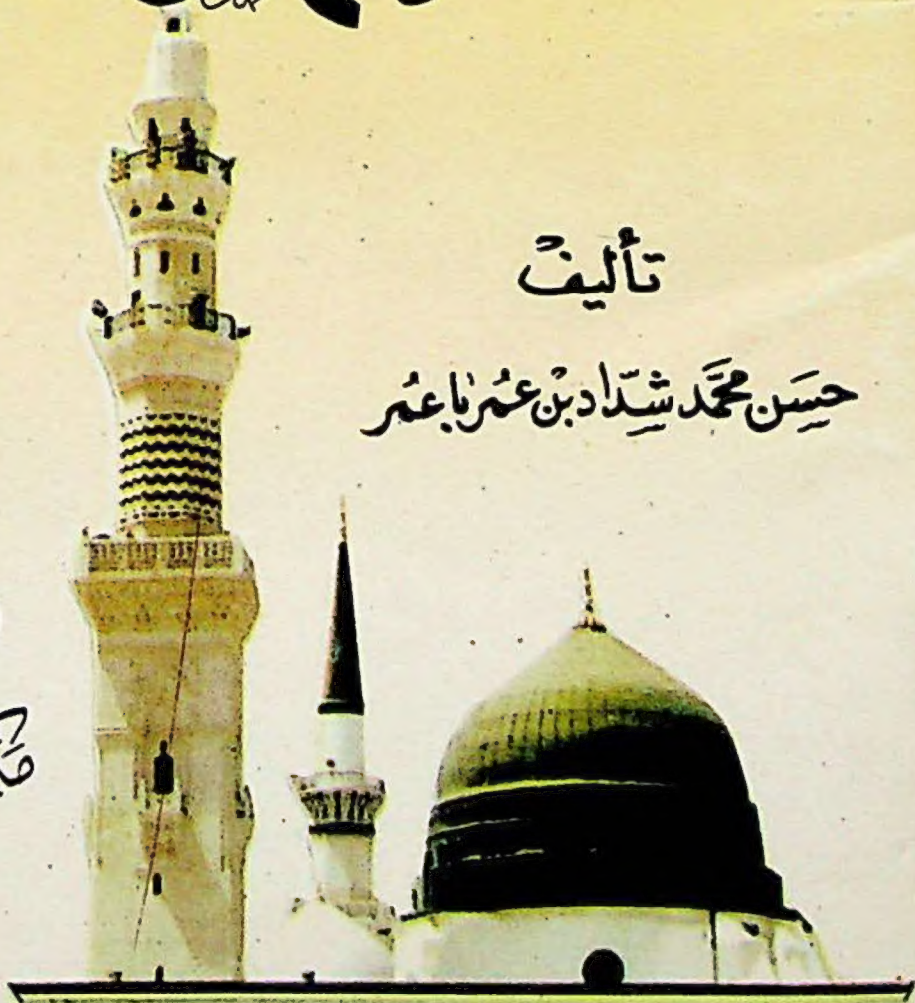 تأليف
حسن محمد شداد بن عمر باعمر